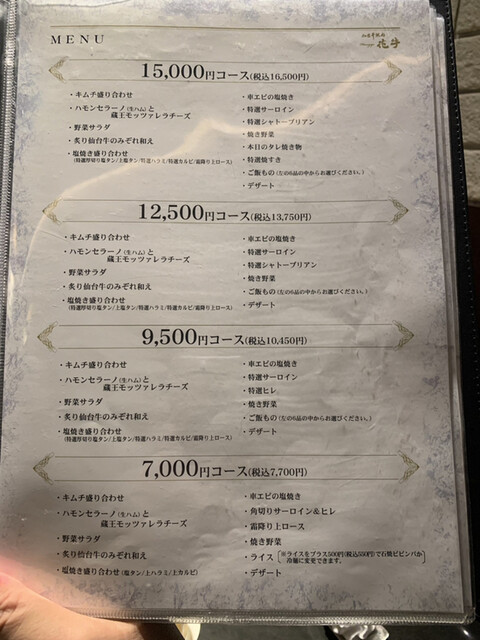 MENU
花牛
15,000円コース(税込16,500円)
・キムチ盛り合わせ
・ハモンセラーノ(生ハム)と
蔵王モッツァレラチーズ
・野菜サラダ
・炙り仙台牛のみぞれ和え
・塩焼き盛り合わせ
(特選厚切り塩タン/上塩タン/特選ハラミ/特選カルビ/霜降り上ロース)
・車エビの塩焼き
・特選サーロイン
・特選シャトーブリアン
・焼き野菜
・本日のタレ焼き物
・特選焼すき
・ご飯もの(左の6品の中からお選びください。)
・デザート
12,500円コース(税込13,750円)
・キムチ盛り合わせ
・ハモンセラーノ(生ハム)と
蔵王モッツァレラチーズ
・野菜サラダ
・炙り仙台牛のみぞれ和え
・塩焼き盛り合わせ
(特選厚切り塩タン/上塩タン/特選ハラミ/特選カルビ/霜降り上ロース)
・車エビの塩焼き
・特選サーロイン
・特選シャトーブリアン
・焼き野菜
・ご飯もの(左の6品の中からお選びください。)
・デザート
9,500円コース(税込10,450円)
・キムチ盛り合わせ
・ハモンセラーノ(生ハム)と
蔵王モッツァレラチーズ
・野菜サラダ
・炙り仙台牛のみぞれ和え
・塩焼き盛り合わせ
(特選厚切り塩タン/上塩タン/特選ハラミ/特選カルビ/霜降り上ロース)
・車エビの塩焼き
・特選サーロイン
・特選ヒレ
・焼き野菜
・ご飯もの(左の6品の中からお選びください。)
・デザート
7,000円コース(税込7,700円)
・キムチ盛り合わせ
・ハモンセラーノ(生ハム)と
蔵王モッツァレラチーズ
・野菜サラダ
・炙り仙台牛のみぞれ和え
・塩焼き盛り合わせ(塩タン/上ハラミ/上カルビ)
・車エビの塩焼き
・角切りサーロイン&ヒレ
・霜降り上ロース
・焼き野菜
・ライス[※ライスをプラス500円(税込550円)で石焼ビビンバか
冷麺に変更できます。]
・デザート